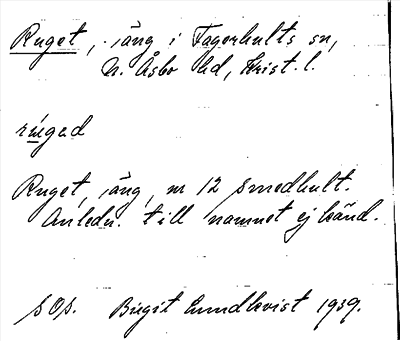 Ruget, äng i Fagerhults sn,
N. Åsbo hd, Krist. l.
rúgəd
Ruget, äng, nr 12 Smedhult.
Anledn. till namnet ej känd.
sOs. Birgit Lundkvist 1939.